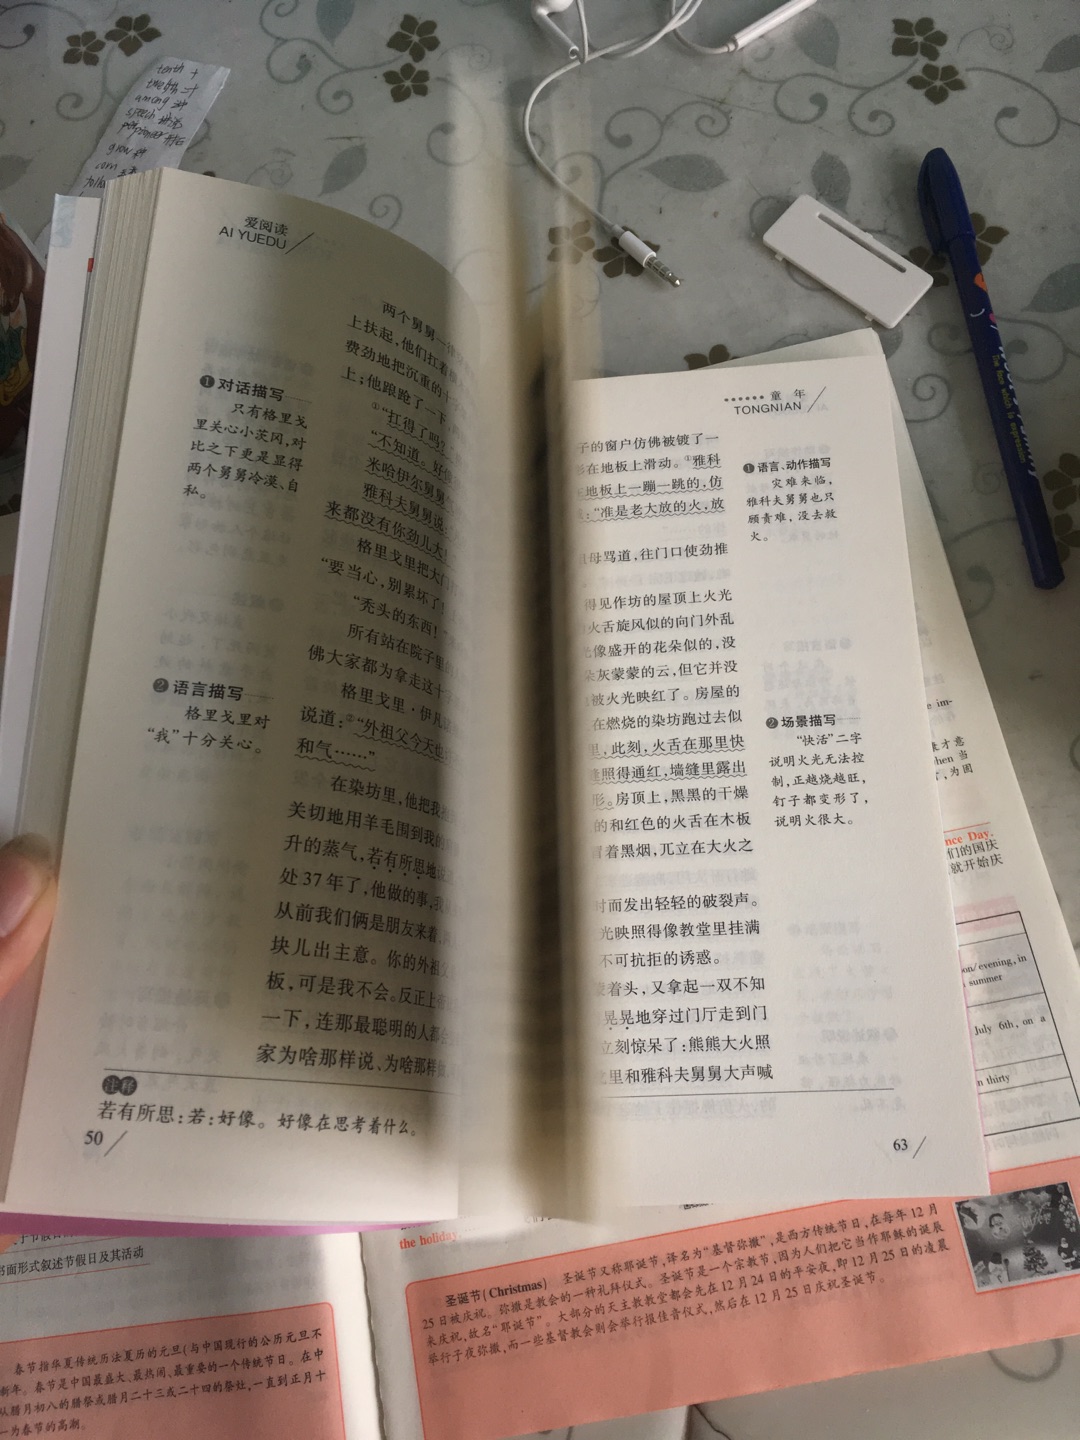 tenth +
among
speech
grow
corn
爱阅读
AI YUEDU
两个舅舅一
上扶起,他们扛着
费劲地把沉重的十
上;他踉跄了一下,
①“扛得了吗?
“不知道。好像
米哈伊尔舅舅
雅科夫舅舅说
来都没有你劲儿大!
格里戈里把大门
“要当心,别累坏了!
“秃头的东西!”
所有站在院子里
佛大家都为拿走这十
格里戈里·伊凡
说道:②“外祖父今天也
和气……”
在染坊里,他把我
关切地用羊毛围到我的
升的蒸气,若有所思地说
处37年了,他做的事,我
从前我们俩是朋友来着,
块儿出主意。你的外祖父
板,可是我不会。反正上
一下,连那最聪明的人都
家为啥那样说、为啥那样做
❶对话描写
只有格里戈
里关心小茨冈,对
比之下更是显得
两个舅舅冷漠、自
私。
❷语言描写
格里戈里对
“我”十分关心。
注释
若有所思:若:好像。好像在思考着什么。
50
童 年
TONGNIAN
子的窗户仿佛被镀了一
在地板上滑动。①雅科
地板上一蹦一跳的,仿
:“准是老大放的火,放
母骂道,往门口使劲推
得见作坊的屋顶上火光
火舌旋风似的向门外乱
像盛开的花朵似的,没
灰蒙蒙的云,但它并没
被火光映红了。房屋的
在燃烧的染坊跑过去似
里,此刻,火舌在那里快
照得通红,墙缝里露出
形。房顶上,黑黑的干燥
的和红色的火舌在木板
着黑烟,兀立在大火之
时而发出轻轻的破裂声。
光映照得像教堂里挂满
不可抗拒的诱惑。
着头,又拿起一双不知
晃晃地穿过门厅走到门
立刻惊呆了:熊熊大火照
里和雅科夫舅舅大声喊
❶语言、动作描写
灾难来临,
雅科夫舅舅也只
顾责难,没去救
火。
❷场景描写
“快活”二字
说明火光无法控
制,正越烧越旺,
钉子都变形了,
说明火很大。
63
e im-
才意
hen 当
,为固
nce Day.
们的国庆
就开始庆
on/evening, in
summer
July 6th, on a
n thirty
the holiday
书面形式叙述节假日及其活动
春节指华夏传统历法夏历的元旦(与中国现行的公历元旦不
新年。春节是中国最盛大、最热闹、最重要的一个传统节日。在中
从腊月初八的腊祭或腊月二十三或二十四的祭灶,一直到正月十
一为春节的高潮。
圣诞节(Christmas) 圣诞节又称耶诞节,译名为“基督弥撒”,是西方传统节日,在每年12月
25日被庆祝。弥撒是教会的一种礼拜仪式。圣诞节是一个宗教节,因为人们把它当作耶稣的诞辰
来庆祝,故名“耶诞节”。大部分的天主教教堂都会先在12月24日的平安夜,即12月25日的凌晨
举行子夜弥撒,而一些基督教会则会举行报佳音仪式,然后在12月25日庆祝圣诞节。